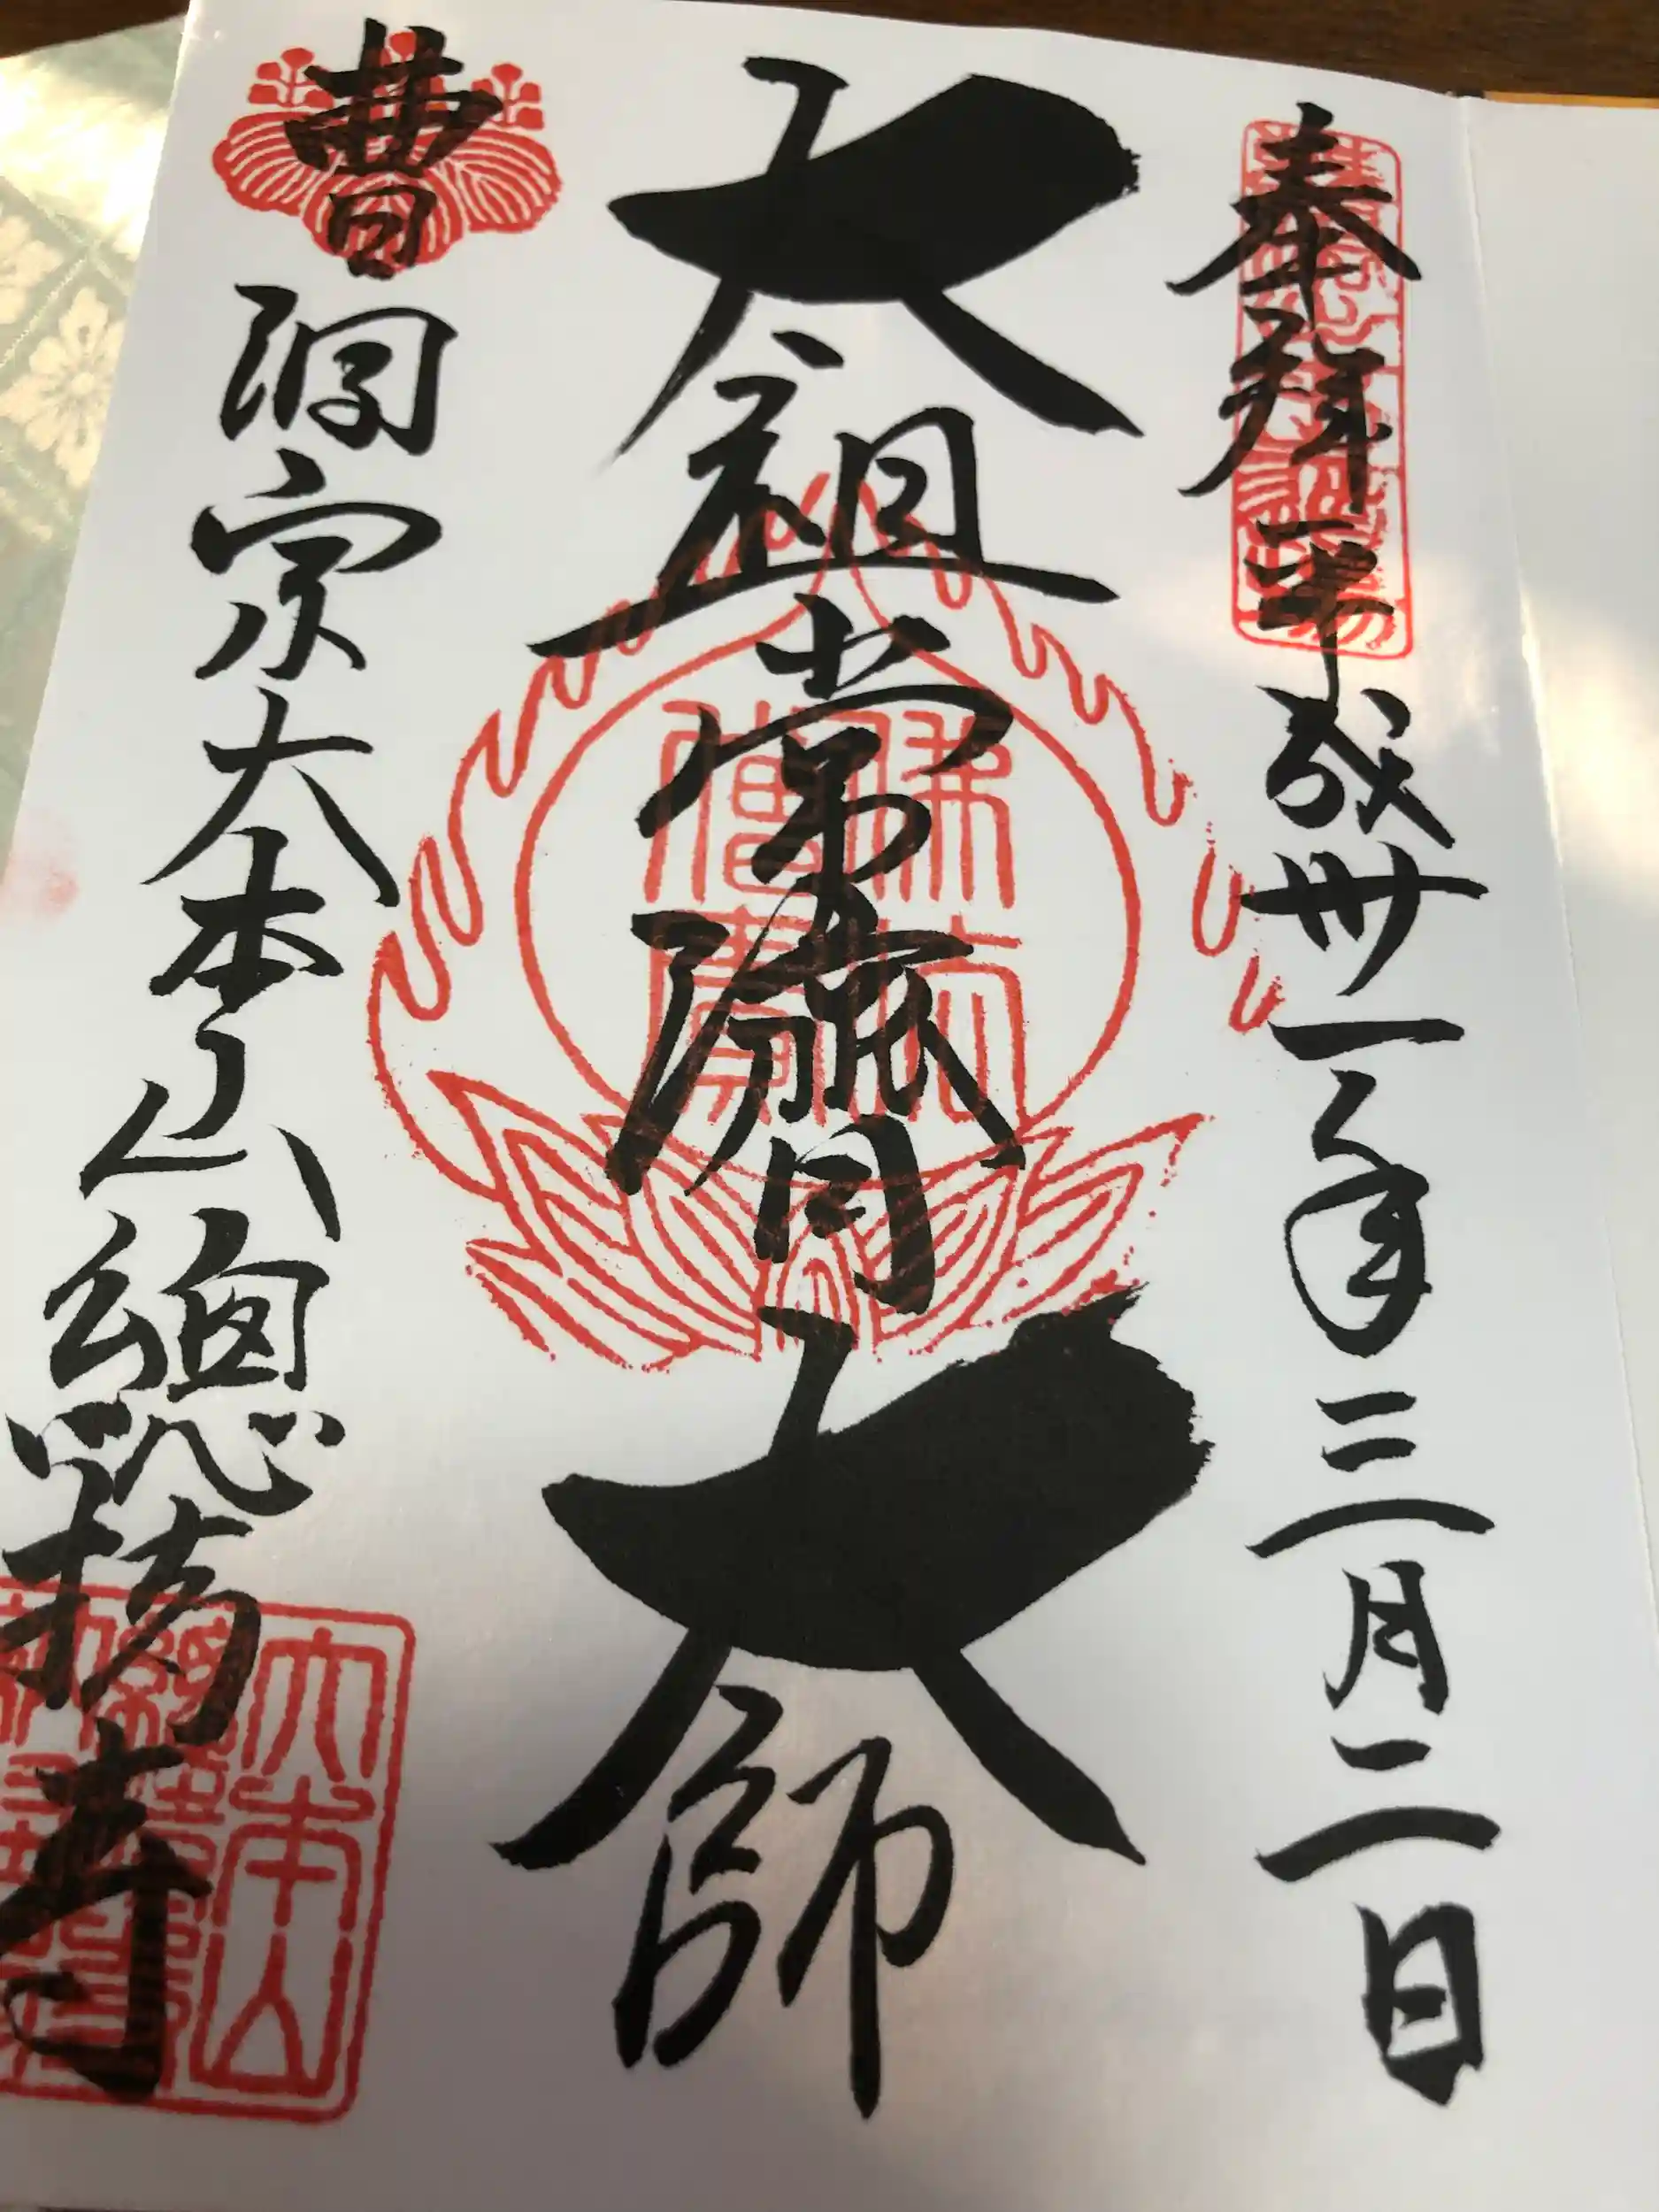 奉拜 平成卅一年三月二日
太祖常濟大師
曹洞宗大本山總持寺
大本山